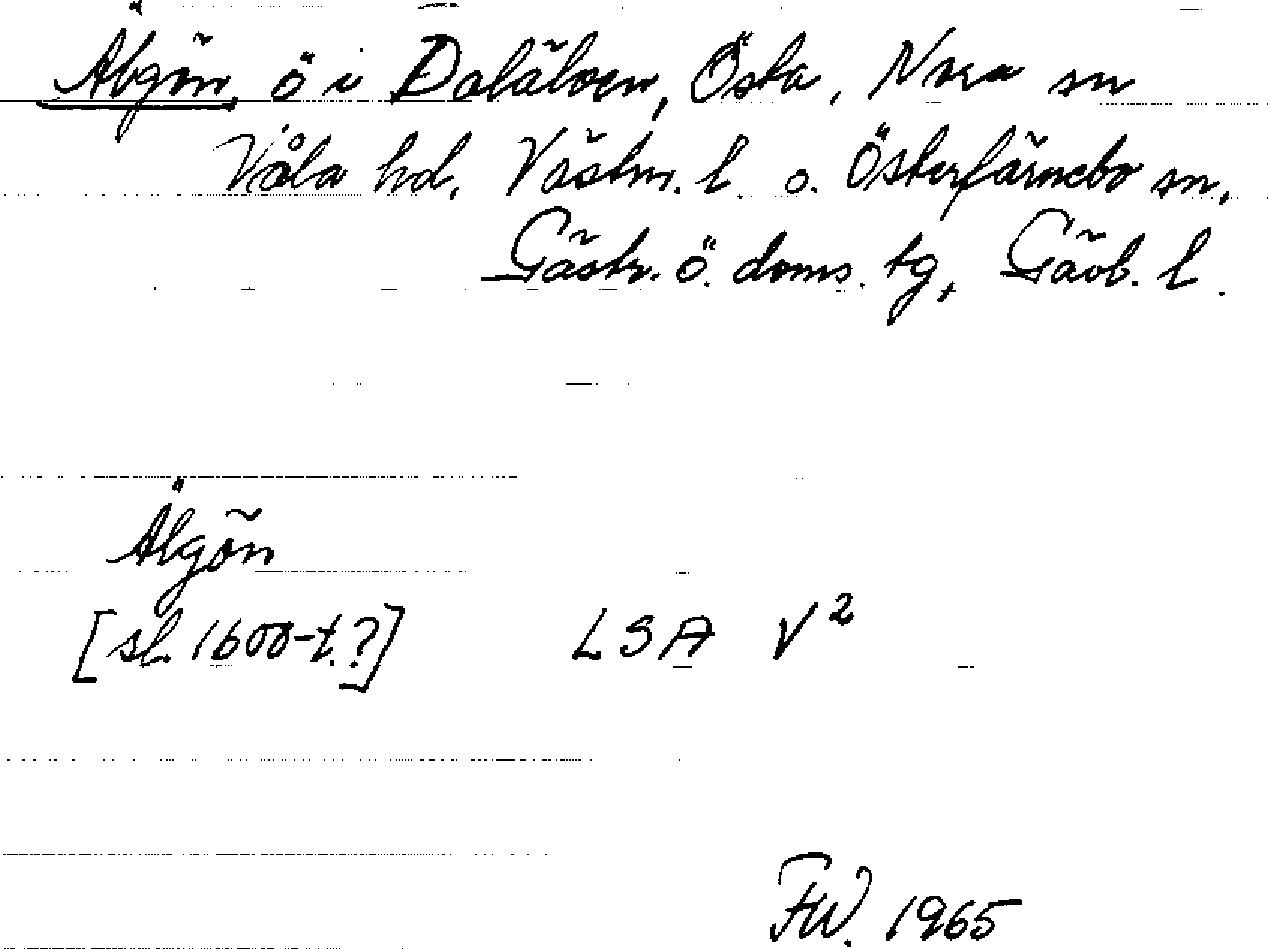 Älgön, ö i Dalälven, Östa, Nora sn
Våla hd, Västm. l. o. Österfärnebo sn,
Gästr. ö. doms. tg, Gävb. l.
Älgön
[sl. 1600-t.?] LSA V²
FW. 1965